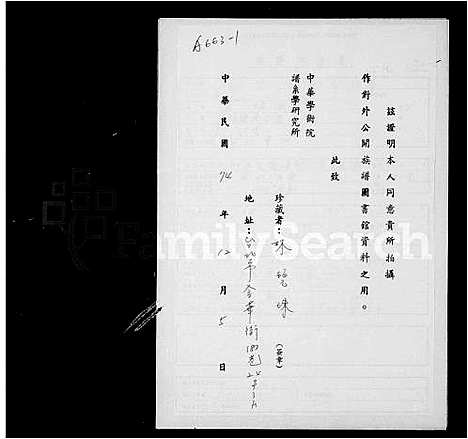 A663-1
茲證明本人同意貴所拍攝
作對外公開族譜圖書館資料之用。
此致
中華學術院
譜系學研究所
珍藏者：林瑩珠（簽章）
地址：台北市金華街
中華民國74年12月5日
FamilySearch